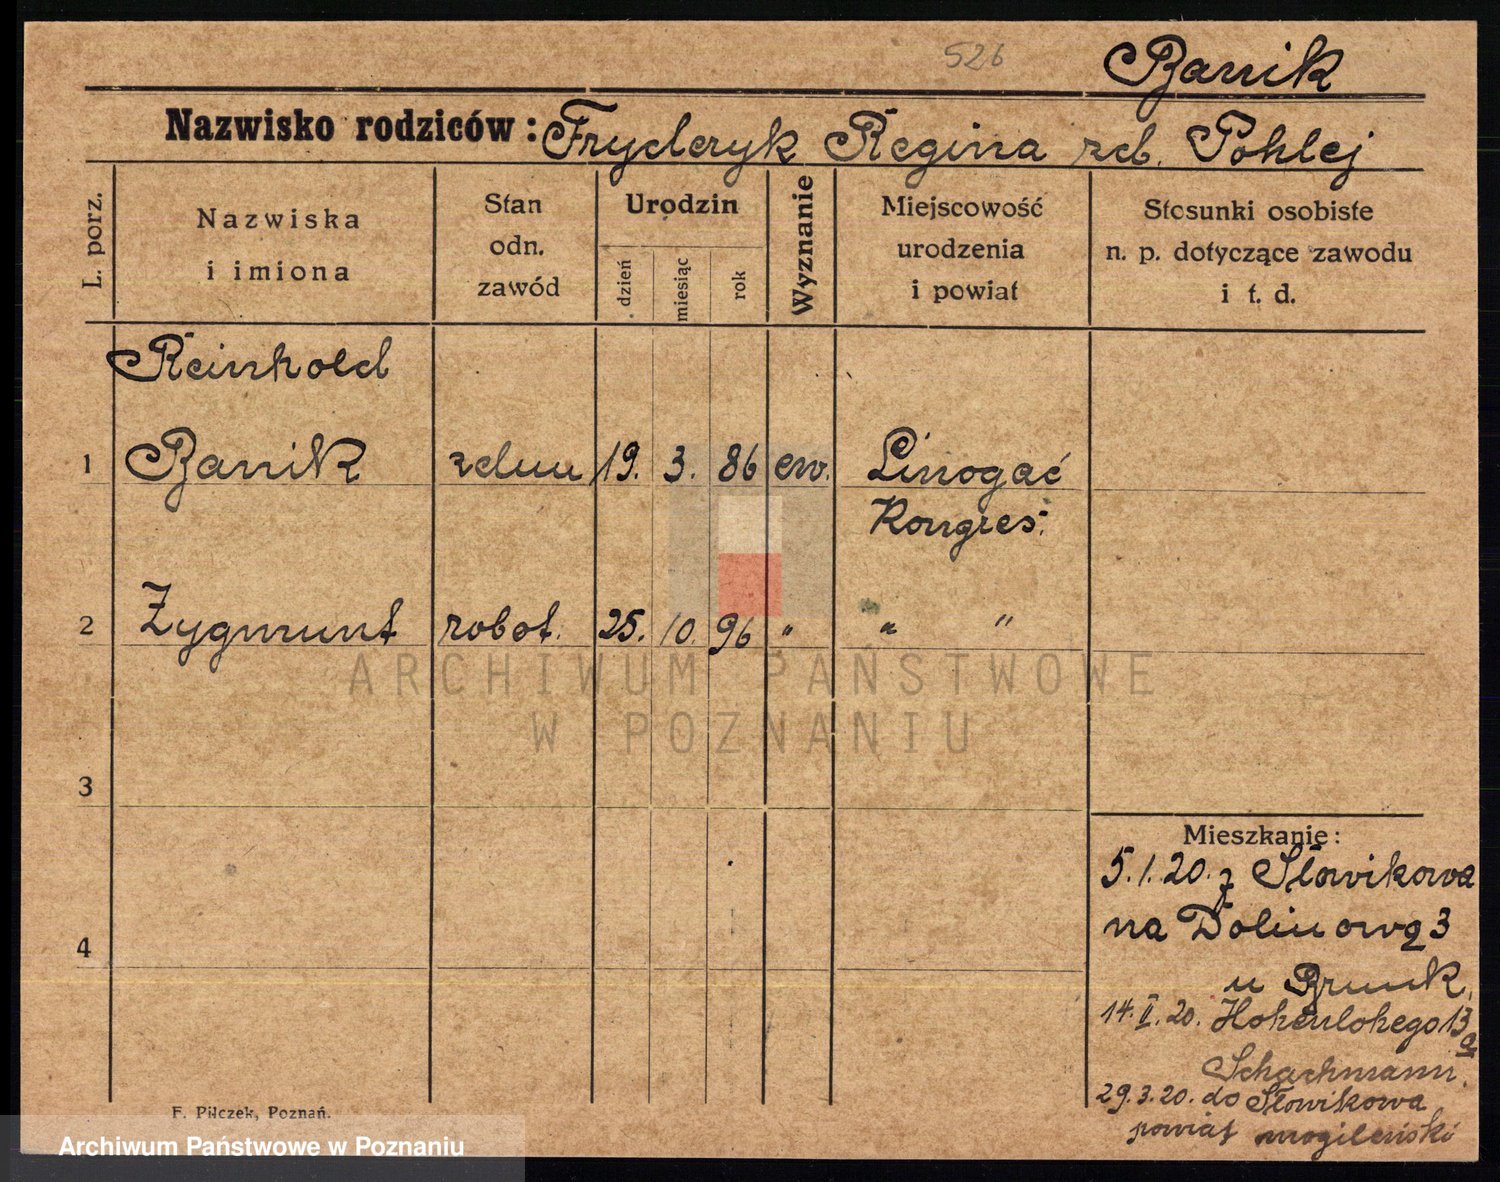 526
Banik
Nazwisko rodziców: Fryderyk Regina zd. Pohlej
L. porz.
Nazwiska
i imiona
Stan
odn.
zawód
Urodzin
dzień
miesiąc
rok
Wyznanie
Miejscowość
urodzenia
i powiat
Stosunki osobiste
n. p. dotyczące zawodu
i t. d.
Reinhold
1 Banik 19. 3. 86 ew. Linogać
Kongres.
2 Zygmunt robot. 25. 10. 96 " " "
ARCHIWUM PAŃSTWOWE
W POZNANIU
3
4
Mieszkanie:
5.1.20. z Słowikowa
na Dolinową 3
u Brunk.
14.II.20. Hohenlohego 13a
Schachmann.
29.3.20. do Słowikowa
powiat mogileński
F. Pilczek, Poznań.
Archiwum Państwowe w Poznaniu